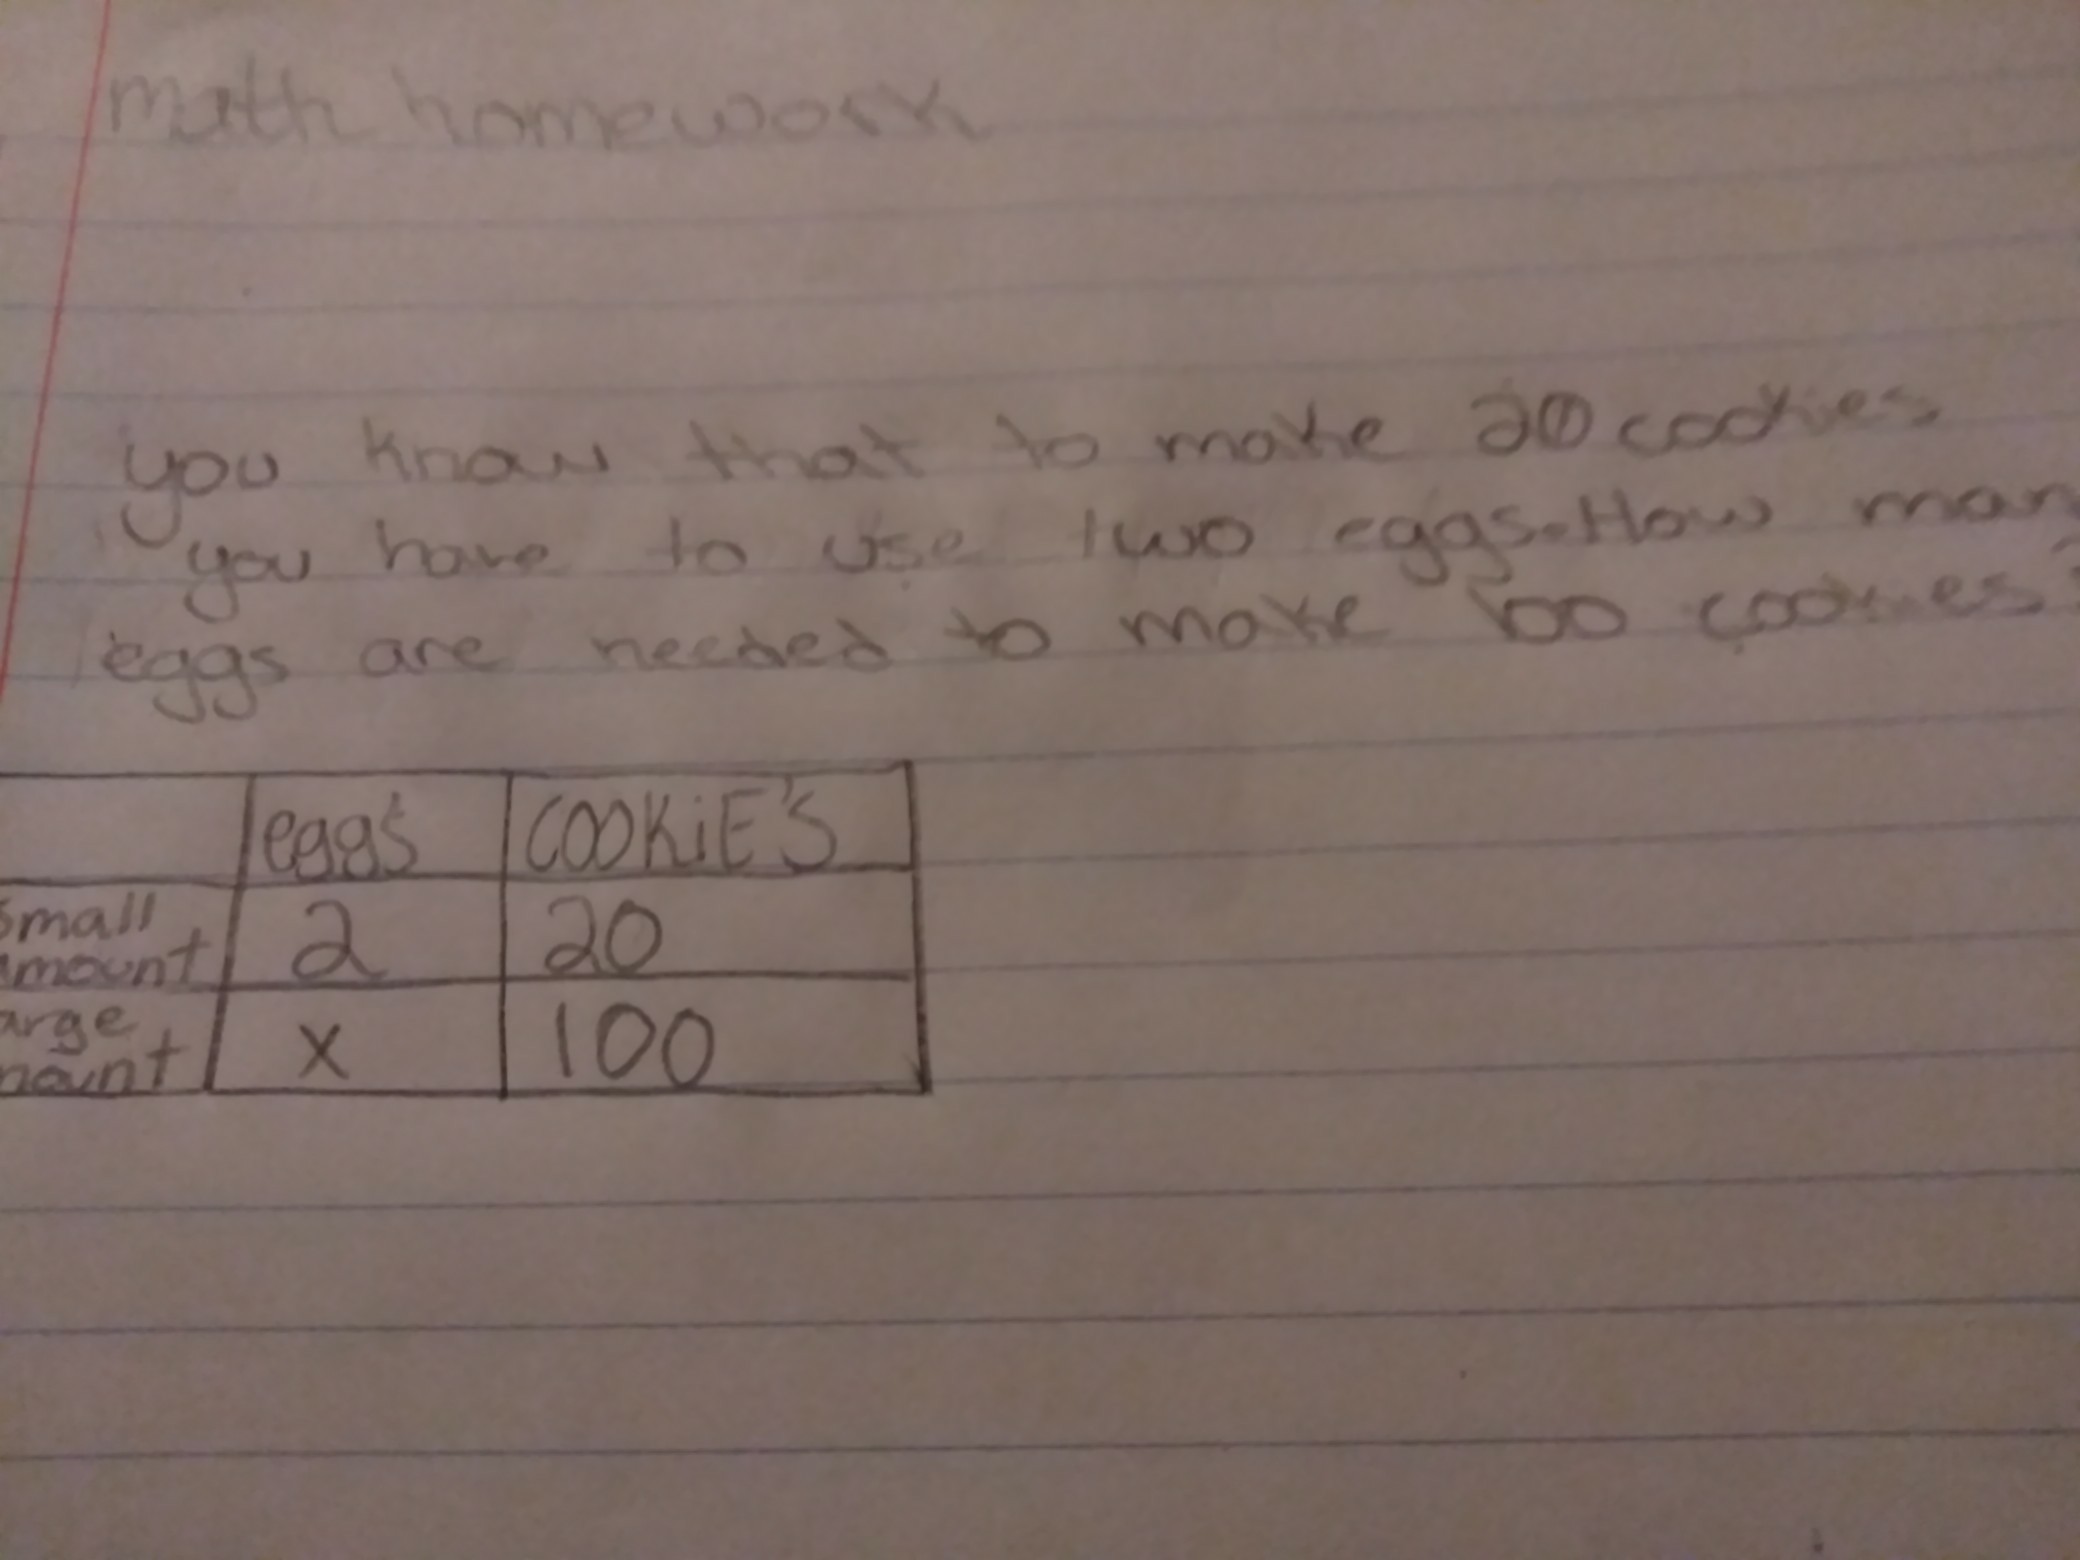 math homework
you know that to make 20 cookies
you have to use two eggs. How man
eggs are needed to make 100 cookies?
eggs COOKiE'S
small
amount 2 20
arge
mount x 100